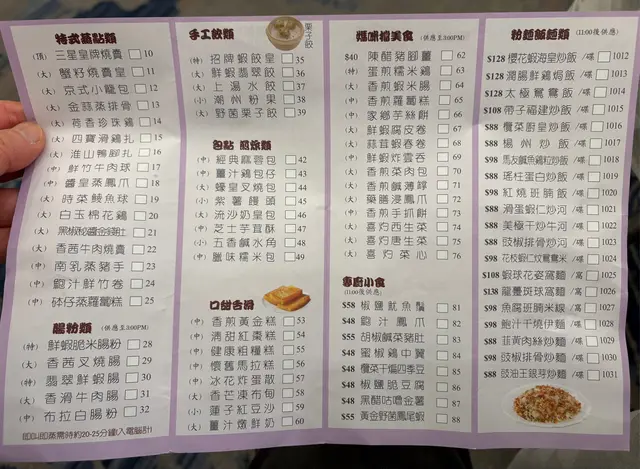 特式蒸點類
(頂) 三星皇牌燒賣 10
(大) 蟹籽燒賣皇 11
(大) 京式小籠包 12
(大) 金蒜蒸排骨 13
(大) 荷香珍珠雞 14
(大) 四寶滑雞扎 15
(大) 淮山鴨腳扎 16
(中) 鮮竹牛肉球 17
(中) 醬皇蒸鳳爪 18
(大) 時菜鯪魚球 19
(大) 白玉棉花雞 20
(大) 黑椒秘醬金錢肚 21
(大) 香茜牛肉燒賣 22
(中) 南乳蒸豬手 23
(中) 鮑汁鮮竹卷 24
(中) 砵仔蒸蘿蔔糕 25
腸粉類 (供應至3:00PM)
(特) 鮮蝦脆米腸粉 28
(大) 香茜叉燒腸 29
(特) 翡翠鮮蝦腸 30
(大) 香滑牛肉腸 31
(中) 布拉白腸粉 32
即叫即蒸需時約20-25分鐘(入電腦計)
手工餃類
栗子餃
(特) 招牌蝦餃皇 35
(大) 鮮蝦翡翠餃 36
(大) 上湯水餃 37
(小) 潮州粉果 38
(大) 野菌栗子餃 39
包點 煎炸類
(中) 經典麻蓉包 42
(中) 薑汁雞包仔 43
(大) 蠔皇叉燒包 44
(小) 紫薯饅頭 45
(大) 流沙奶皇包 46
(中) 芝士芋茸酥 47
(小) 五香鹹水角 48
(中) 臘味糯米包 49
口甜舌滑
(中) 香煎黃金糕 53
(中) 清甜紅棗糕 54
(中) 健康粗糧糕 55
(中) 懷舊馬拉糕 56
(中) 冰花炸蛋散 57
(大) 香芒凍布甸 58
(小) 蓮子紅豆沙 59
(大) 薑汁燉鮮奶 60
媽咪檔美食 (供應至3:00PM)
$40 陳醋豬腳薑 62
(特) 蛋煎糯米雞 63
(大) 香煎蝦米腸 64
(中) 香煎蘿蔔糕 65
(中) 家鄉芋絲餅 66
(大) 鮮蝦腐皮卷 67
(大) 蒜茸蝦春卷 68
(中) 鮮蝦炸雲吞 69
(大) 香煎菜肉包 70
(大) 香煎鹹薄餐 71
(大) 藥膳浸鳳爪 72
(中) 香煎手抓餅 73
(大) 喜灼西生菜 74
(大) 喜灼唐生菜 75
(大) 喜灼菜心 76
專廚小食
(11:00後供應)
$58 椒鹽魷魚鬚 81
$48 鮑汁鳳爪 82
$55 胡椒鹹菜豬肚 83
$48 蜜椒雞中翼 84
$48 欖菜干煸四季豆 85
$48 椒鹽脆豆腐 86
$48 黑醋咕嚕金薯 87
$55 黃金野菌鳳尾蝦 88
粉麵飯麵類 (11:00後供應)
$128 櫻花蝦海皇炒飯/碟 1012
$128 潤腸鮮雞焗飯/碟 1013
$128 太極鴛鴦飯/碟 1014
$108 帶子福建炒飯/碟 1015
$88 欖菜廚皇炒飯/碟 1016
$88 楊州炒飯/碟 1017
$98 馬友鹹魚雞粒炒飯/碟 1018
$88 瑤柱蛋白炒飯/碟 1019
$98 紅燒班腩飯/碟 1020
$88 滑蛋蝦仁炒河/碟 1021
$88 美極干炒牛河/碟 1022
$88 豉椒排骨炒河/碟 1023
$98 花枝蝦仁炆鴛鴦米/碟 1024
$108 蝦球花姿窩麵/窩 1025
$138 龍躉斑球窩麵/窩 1026
$98 魚腐班腩米線/窩 1027
$98 鮑汁干燒伊麵/碟 1028
$88 韮黃肉絲炒麵/碟 1029
$98 豉椒排骨炒麵/碟 1030
$88 豉油王銀芽炒麵/碟 1031